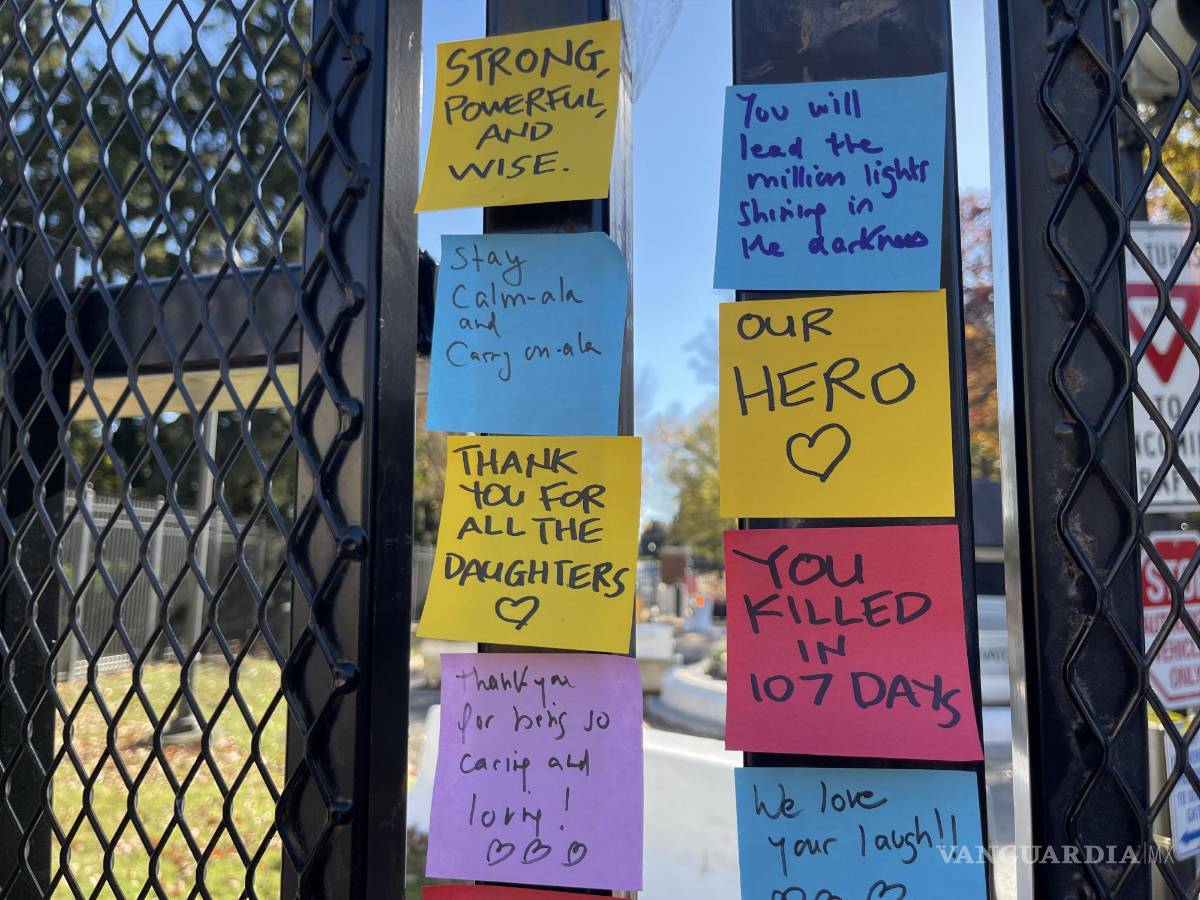 STRONG,
POWERFUL,
AND
WISE.
Stay
Calm-ala
and
Carry on-ala
THANK
YOU FOR
ALL THE
DAUGHTERS
Thank you
for being so
caring and
loving!
You will
lead the
million lights
shining in
the darkness
OUR
HERO
YOU
KILLED
IN
107 DAYS
We love
your laugh!!
TO
ONLY
VANGUARDIA|MX